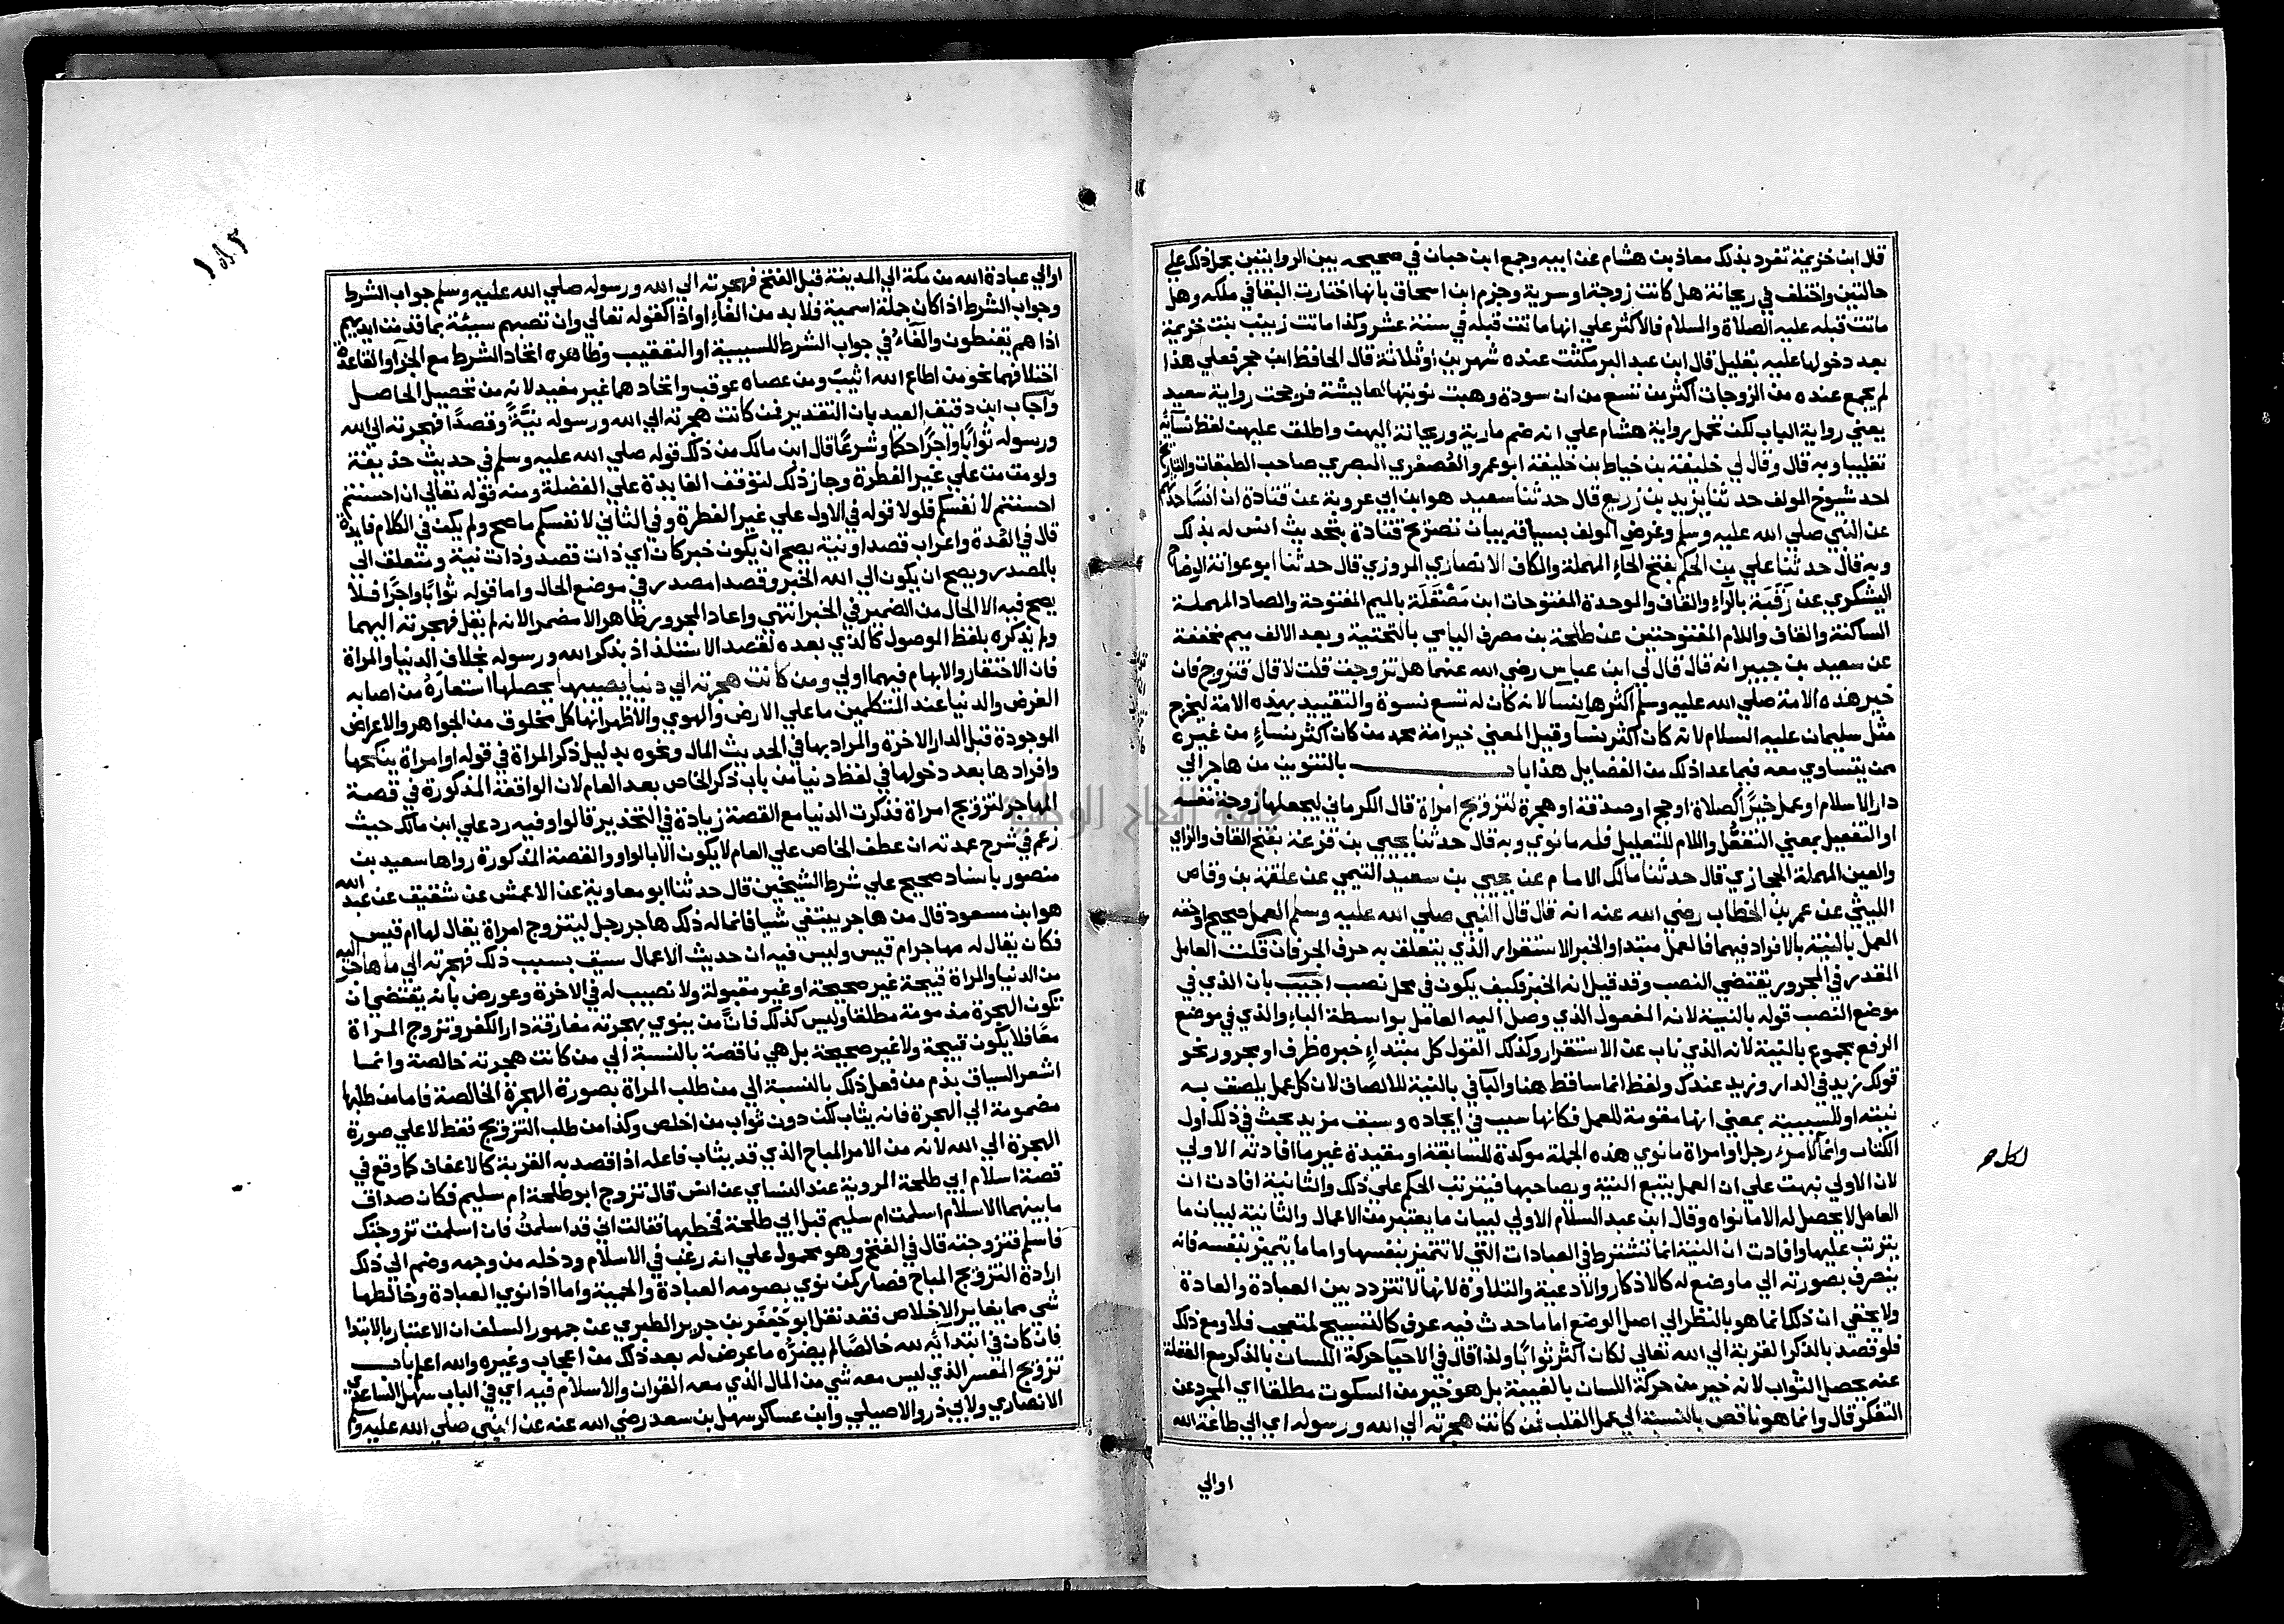 قال ابن خزيمة تفرد بذلك معاذ بن هشام عن ابيه وجمع ابن حبان في صحيحه بين الروايتين بحمل ذلك علي
حالتين واختلف في ريحانة هل كانت زوجة او سرية وجزم ابن اسحاق بانها اختارت البقا في ملكه وهل
ماتت قبله عليه الصلاة والسلام فالاكثر علي انها ماتت قبله في سنة عشر وكذا ماتت زينب بنت خزيمة
بعد دخولها عليه بقليل قال ابن عبد البر مكثت عنده شهرين او ثلاثة قال الحافظ ابن حجر فعلي هذا
لم يجمع عنده من الزوجات اكثر من تسع مع ان سودة وهبت نوبتها لعايشة فرجحت رواية سعيد
يعني رواية الباب لكن تحمل رواية هشام علي انه ضم مارية وريحانة اليهن واطلق عليهن لفظ نسائه
تغليبا وبه قال وقال لي خليفة بن خياط بن خليفة ابو عمرو العصفري البصري صاحب الطبقات والتاريخ
احد شيوخ المولف حدثنا يزيد بن زريع قال حدثنا سعيد هو ابن ابي عروبة عن قتادة ان انسا حدثهم
عن النبي صلي الله عليه وسلم وغرض المولف بسياقه بيان تصريح قتادة بتحديث انس له بذلك
وبه قال حدثنا علي بن الحكم بفتح الحاء المهملة والكاف الانصاري المروزي قال حدثنا ابو عوانة الوضاح
اليشكري عن رقبة بالراء والقاف والموحدة المفتوحات ابن مصقلة بالميم المفتوحة والصاد المهملة
الساكنة والقاف واللام المفتوحتين عن طلحة بن مصرف اليامي بالتحتية وبعد الالف ميم مخففة
عن سعيد بن جبير انه قال قال لي ابن عباس رضي الله عنهما هل تزوجت قلت لا قال فتزوج فان
خير هذه الامة صلي الله عليه وسلم اكثرها نسا لانه كان له تسع نسوة والتقييد بهذه الامة ليخرج
مثل سليمان عليه السلام لانه كان اكثر نسا وقيل المعني خير امة محمد من كان اكثر نساء من غيره
ممن يتساوي معه فيما عدا ذلك من الفضايل هذا باب بالتنوين من هاجر الي
دار الاسلام او عمل خيرا كصلاة او حج او صدقة او هجرة لتزويج امراة قال الكرماني ليجعلها زوجة نفسه
او التفعيل بمعني التفعل واللام للتعليل فله ما نوي وبه قال حدثنا يحيي بن قزعة بفتح القاف والزاي
والعين المهملة الحجازي قال حدثنا مالك الامام عن يحيي بن سعيد التيمي عن علقمة بن وقاص
الليثي عن عمر بن الخطاب رضي الله عنه انه قال قال النبي صلي الله عليه وسلم العمل صحيح او صحة
العمل بالنية بالافراد فيهما فالعمل مبتدا والخبر الاستقرار الذي يتعلق به حرف الجر فان قلت العامل
المقدر في المجرور يقتضي النصب وقد قيل انه الخبر فكيف يكون في محل نصب اجيب بان الذي في
موضع النصب قوله بالنية لانه المفعول الذي وصل اليه العامل بواسطة الباء والذي في موضع
الرفع مجموع بالنية لانه الذي ناب عن الاستقرار وكذلك القول كل مبتداء خبره ظرف او مجرور نحو
قولك زيد في الدار وزيد عندك ولفظ انما ساقط هنا والبا في بالنية للالصاق لان كل عمل يلصق به
نيته او للسببية بمعني انها مقومة للعمل فكانها سبب في ايجاده وسبق مزيد بحث في ذلك اول
الكتاب وانما لامرء رجل او امراة ما نوي هذه الجملة موكدة للسابقة او مقيدة غير ما افادته الاولي
لان الاولي نبهت علي ان العمل يتبع النية ويصاحبها فيترتب الحكم علي ذلك والثانية افادت ان
العامل لا يحصل له الا ما نواه وقال ابن عبد السلام الاولي لبيان ما يعتبر من الاعمال والثانية لبيان ما
يترتب عليها وافادت ان النية انما تشترط في العبادات التي لا تتميز بنفسها واما ما يتميز بنفسه فانه
ينصرف بصورته الي ما وضع له كالاذكار والادعية والتلاوة لانها لا تتردد بين العبادة والعادة
ولا يخفي ان ذلك انما هو بالنظر الي اصل الوضع اما ما حدث فيه عرف كالتسبيح لمتعجب فلا ومع ذلك
فلو قصد بالذكر القربة الي الله تعالي لكان اكثر ثوابا ولذا قال في الاحيا حركة اللسان بالذكر مع الغفلة
عنه يحصل الثواب لانه خير من حركة اللسان بالغيبة بل هو خير من السكوت مطلقا اي المجرد عن
التفكر قال وانما هو ناقص بالنسبة الي عمل القلب فمن كانت هجرته الي الله ورسوله اي الي طاعة الله
اوالي
او الي عبادة الله من مكة الي المدينة قبل الفتح فهجرته الي الله ورسوله صلي الله عليه وسلم جواب الشرط
وجواب الشرط اذا كان جملة اسمية فلا بد من الفاء او اذا كقوله تعالي وان تصبهم سيئة بما قدمت ايديهم
اذا هم يقنطون والفاء في جواب الشرط للسببية او التعقيب وظاهره اتحاد الشرط مع الجزا والقاعدة
اختلافهما نحو من اطاع الله اثيب ومن عصاه عوقب واتحادها غير مفيد لانه من تحصيل الحاصل
واجاب ابن دقيق العيد بان التقدير فمن كانت هجرته الي الله ورسوله نية وقصدا فهجرته الي الله
ورسوله ثوابا واجرا حكما وشرعا قال ابن مالك من ذلك قوله صلي الله عليه وسلم في حديث حذيفة
ولو مت مت علي غير الفطرة وجاز ذلك لتوقف الفايدة علي الفضلة ومنه قوله تعالي ان احسنتم
احسنتم لانفسكم فلولا قوله في الاول علي غير الفطرة وفي الثاني لانفسكم ما صح ولم يكن في الكلام فايدة
قال في العدة واعراب قصدا ونية يصح ان يكون خبر كان اي ذات قصد وذات نية وتتعلق الي
بالمصدر ويصح ان يكون الي الله الخبر وقصدا مصدر في موضع الحال واما قوله ثوابا واجرا فلا
يصح فيه الا الحال من الضمير في الخبر انتهي واعاد المجرور ظاهرا لا مضمرا لانه لم يقل فهجرته اليهما
ولم يذكره بلفظ الموصول كالذي بعده لقصد الاستلذاذ بذكر الله ورسوله بخلاف الدنيا والمراة
فان الاحتقار والابهام فيهما اولي ومن كانت هجرته الي دنيا يصيبها يحصلها استعارة من اصابة
الغرض والدنيا عند المتكلمين ما علي الارض والهوي والاظهر انها كل مخلوق من الجواهر والاعراض
الموجودة قبل الدار الاخرة والمراد بها في الحديث المال ونحوه بدليل ذكر المراة في قوله او امراة ينكحها
وافرادها بعد دخولها في لفظ دنيا من باب ذكر الخاص بعد العام لان الواقعة المذكورة في قصة
المهاجر لتزويج امراة فذكرت الدنيا مع القصة زيادة في التحذير قالوا وفيه رد علي ابن مالك حيث
زعم في شرح عمدته ان عطف الخاص علي العام لا يكون الا بالواو والقصة المذكورة رواها سعيد بن
منصور باسناد صحيح علي شرط الشيخين قال حدثنا ابو معاوية عن الاعمش عن شقيق عن عبد الله
هو ابن مسعود قال من هاجر يبتغي شيا فانما له ذلك هاجر رجل ليتزوج امراة يقال لها ام قيس
فكان يقال له مهاجر ام قيس وليس فيه ان حديث الاعمال سيق بسبب ذلك فهجرته الي ما هاجر اليه
من الدنيا والمراة قبيحة غير صحيحة او غير مقبولة ولا نصيب له في الاخرة وعورض بانه يقتضي ان
تكون الهجرة مذمومة مطلقا وليس كذلك فان من ينوي بهجرته مفارقة دار الكفر وتزوج المراة
معا فلا يكون قبيحة ولا غير صحيحة بل هي ناقصة بالنسبة الي من كانت هجرته خالصة وانما
اشعر السياق بذم من فعل ذلك بالنسبة الي من طلب المراة بصورة الهجرة الخالصة فاما من طلبها
مضمومة الي الهجرة فانه يثاب لكن دون ثواب من اخلص وكذا من طلب التزويج فقط لا علي صورة
الهجرة الي الله لانه من الامر المباح الذي قد يثاب فاعله اذا قصد به القربة كالاعفاف كما وقع في
قصة اسلام ابي طلحة المروية عند النساي عن انس قال تزوج ابو طلحة ام سليم فكان صداق
ما بينهما الاسلام اسلمت ام سليم قبل ابي طلحة فخطبها فقالت اني قد اسلمت فان اسلمت تزوجتك
فاسلم فتزوجته قال في الفتح وهو محمول علي انه رغب في الاسلام ودخله من وجهه وضم الي ذلك
ارادة التزويج المباح فصار كمن نوي بصومه العبادة والحمية واما اذا نوي العبادة وخالطها
شي مما يغاير الاخلاص فقد نقل ابو جعفر بن جرير الطبري عن جمهور السلف ان الاعتبار بالابتدا
فان كان في ابتدائه لله خالصا لم يضره ما عرض له بعد ذلك من اعجاب وغيره والله اعلم باب
تزويج المعسر الذي ليس معه شي من المال الذي معه القران والاسلام فيه اي في الباب سهل الساعدي
الانصاري ولابي ذر والاصيلي وابن عساكر سهل بن سعد رضي الله عنه عن النبي صلي الله عليه وسلم
جامعة النجاح الوطنية